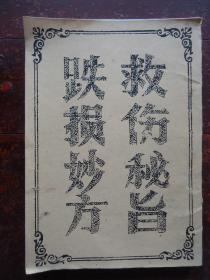 救伤秘旨
跌损妙方